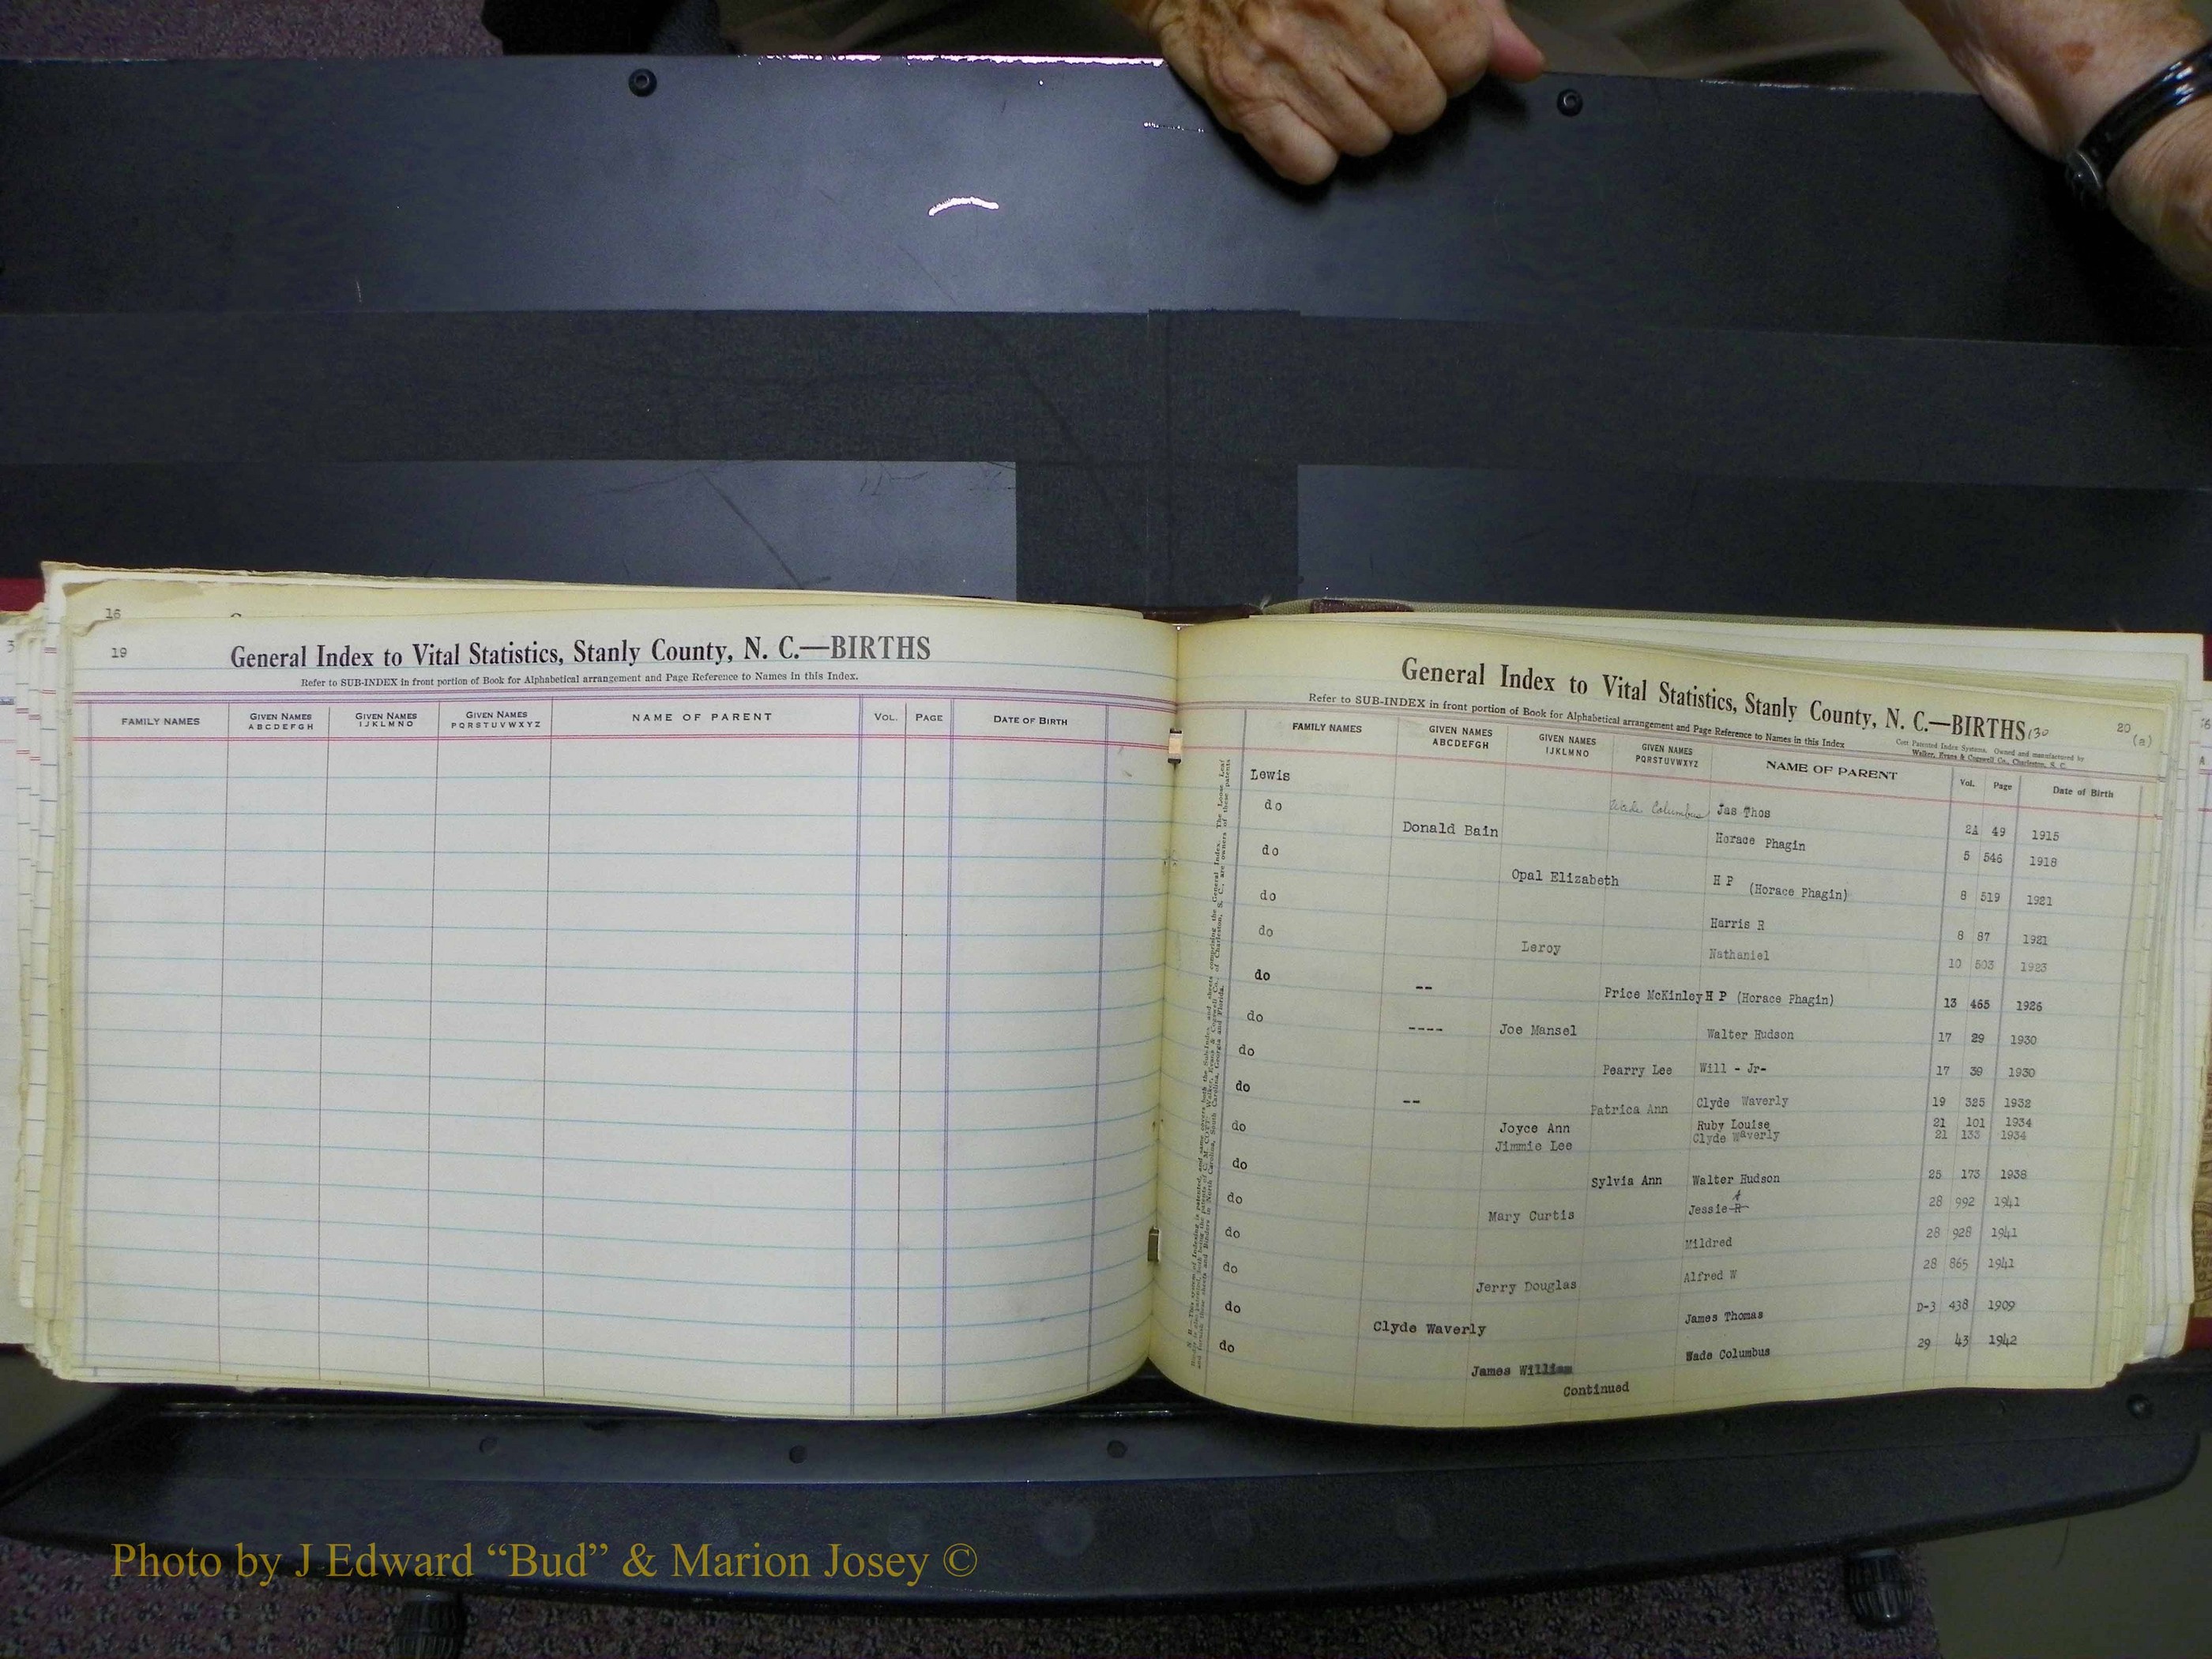 3
16
19
General Index to Vital Statistics, Stanly County, N. C.—BIRTHS
Refer to SUB-INDEX in front portion of Book for Alphabetical arrangement and Page Reference to Names in this Index.
FAMILY NAMES GIVEN NAMES ABCDEFGH GIVEN NAMES IJKLMNO GIVEN NAMES PQRSTUVWXYZ NAME OF PARENT VOL. PAGE DATE OF BIRTH
General Index to Vital Statistics, Stanly County, N. C.—BIRTHS 130 20 (a)
Refer to SUB-INDEX in front portion of Book for Alphabetical arrangement and Page Reference to Names in this Index
Cott Patented Index Systems. Owned and manufactured by
Walker, Evans & Cogswell Co., Charleston, S. C.
FAMILY NAMES GIVEN NAMES ABCDEFGH GIVEN NAMES IJKLMNO GIVEN NAMES PQRSTUVWXYZ NAME OF PARENT Vol. Page Date of Birth
Lewis Wade Columbus Jas Thos 2A 49 1915
do Donald Bain Horace Phagin 5 546 1918
do Opal Elizabeth H P (Horace Phagin) 8 519 1921
do Harris R 8 87 1921
do Leroy Nathaniel 10 503 1923
do -- Price McKinley H P (Horace Phagin) 13 465 1926
do ---- Joe Mansel Walter Hudson 17 29 1930
do Pearry Lee Will - Jr- 17 39 1930
do -- Patrica Ann Clyde Waverly 19 325 1932
do Joyce Ann Ruby Louise 21 101 1934
Jimmie Lee Clyde Waverly 21 133 1934
do Sylvia Ann Walter Hudson 25 173 1938
do Mary Curtis Jessie R A 28 992 1941
do Mildred 28 928 1941
do Jerry Douglas Alfred W 28 865 1941
do Clyde Waverly James Thomas D-3 438 1909
do James William Wade Columbus 29 43 1942
Continued
Photo by J Edward “Bud” & Marion Josey ©